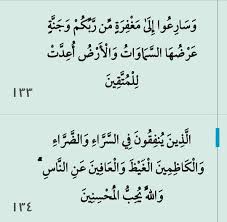 وَسَارِعُوا إِلَىٰ مَغْفِرَةٍ مِّن رَّبِّكُمْ وَجَنَّةٍ
عَرْضُهَا السَّمَاوَاتُ وَالْأَرْضُ أُعِدَّتْ
لِلْمُتَّقِينَ
١٣٣
الَّذِينَ يُنفِقُونَ فِي السَّرَّاءِ وَالضَّرَّاءِ
وَالْكَاظِمِينَ الْغَيْظَ وَالْعَافِينَ عَنِ النَّاسِ ۗ
وَاللَّهُ يُحِبُّ الْمُحْسِنِينَ
١٣٤